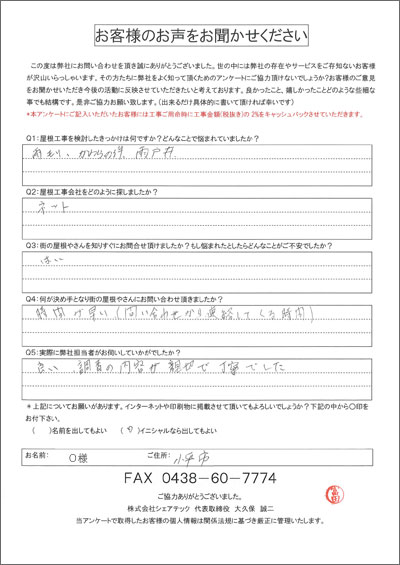 お客様のお声をお聞かせください
この度は弊社にお問い合わせを頂き誠にありがとうございました。世の中には弊社の存在やサービスをご存知ないお客様
が沢山いらっしゃいます。その方たちに弊社をよく知って頂くためのアンケートにご協力頂けないでしょうか?お客様のご意見
をお聞かせいただき今後の活動に反映させていただきたいと考えております。良かったこと、嬉しかったことどのような些細な
事でも結構です。是非ご協力お願い致します。(出来るだけ具体的に書いて頂ければ幸いです)
*本アンケートにご記入いただいたお客様には工事ご用命時に工事金額(税抜き)の2%をキャッシュバックさせていただきます。
Q1:屋根工事を検討したきっかけは何ですか?どんなことで悩まれていましたか?
雨もり、かわらの 雨戸
Q2:屋根工事会社をどのように探しましたか?
ネット
Q3:街の屋根やさんを知りすぐにお問合せ頂けましたか?もし悩まれたとしたらどんなことがご不安でしたか?
はい
Q4:何が決め手となり街の屋根やさんにお問い合わせ頂きましたか?
時間が早い(問い合わせから連絡してくる時間)
Q5:実際に弊社担当者がお伺いしていかがでしたか?
良い 調査の内容が親切で丁寧でした
*上記についてお願いがあります。インターネットや印刷物に掲載させて頂いてもよろしいでしょうか?下記の中から○印を
お付下さい。
( )名前を出してもよい (○)イニシャルなら出してもよい
お名前: O様 ご住所: 小平市
FAX 0438-60-7774
ご協力ありがとうございました。
株式会社シェアテック 代表取締役 大久保 誠二
当アンケートで取得したお客様の個人情報は関係法規に基づき厳正に管理いたします。